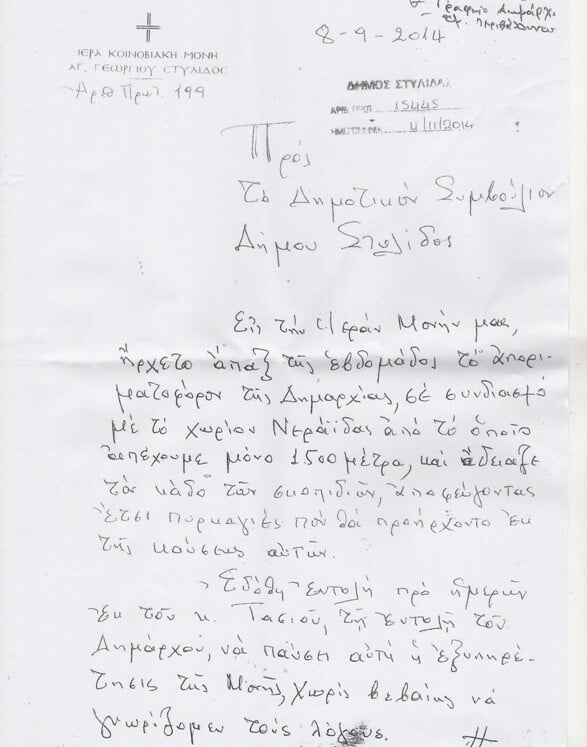 Γραφεῖο Δημάρχ
8-9-2014
ΙΕΡΑ ΚΟΙΝΟΒΙΑΚΗ ΜΟΝΗ
ΑΓ. ΓΕΩΡΓΙΟΥ ΣΤΥΛΙΔΟΣ
Αριθ Πρωτ. 199
ΔΗΜΟΣ ΣΤΥΛΙΔΑΣ
ΑΡΙΘ ΠΡΩΤ 15445
4/11/2014
Πρός
τὸ Δημοτικόν Συμβούλιον
Δήμου Στυλίδος
Εἰς τήν Ἱεράν Μονήν μας,
ἤρχετο ἅπαξ τῆς ἑβδομάδος τὸ ἀπορι-
ματοφόρον τῆς Δημαρχίας, σὲ συνδιασμό
μὲ τό χωρίον Νεράϊδας ἀπὸ τό ὁποῖο
ἀπέχουμε μόνο 1.500 μέτρα, καὶ ἄδειαζε
τὸν κάδο τῶν σκουπιδιῶν, ἀποφεύγοντας
ἔτσι πυρκαγιές ποὺ θὰ προήρχοντο ἐκ
τῆς καύσεως αὐτῶν.
Ἐδόθη ἐντολή πρό ἡμερῶν
ἐκ τοῦ κ. Τασιοῦ, τῇ ἐντολῇ τοῦ
Δημάρχου, νὰ παύσῃ αὐτή ἡ ἐξυπηρέ-
τησις τῆς Μονῆς, χωρίς βεβαίως νά
γνωρίζομεν τοὺς λόγους.